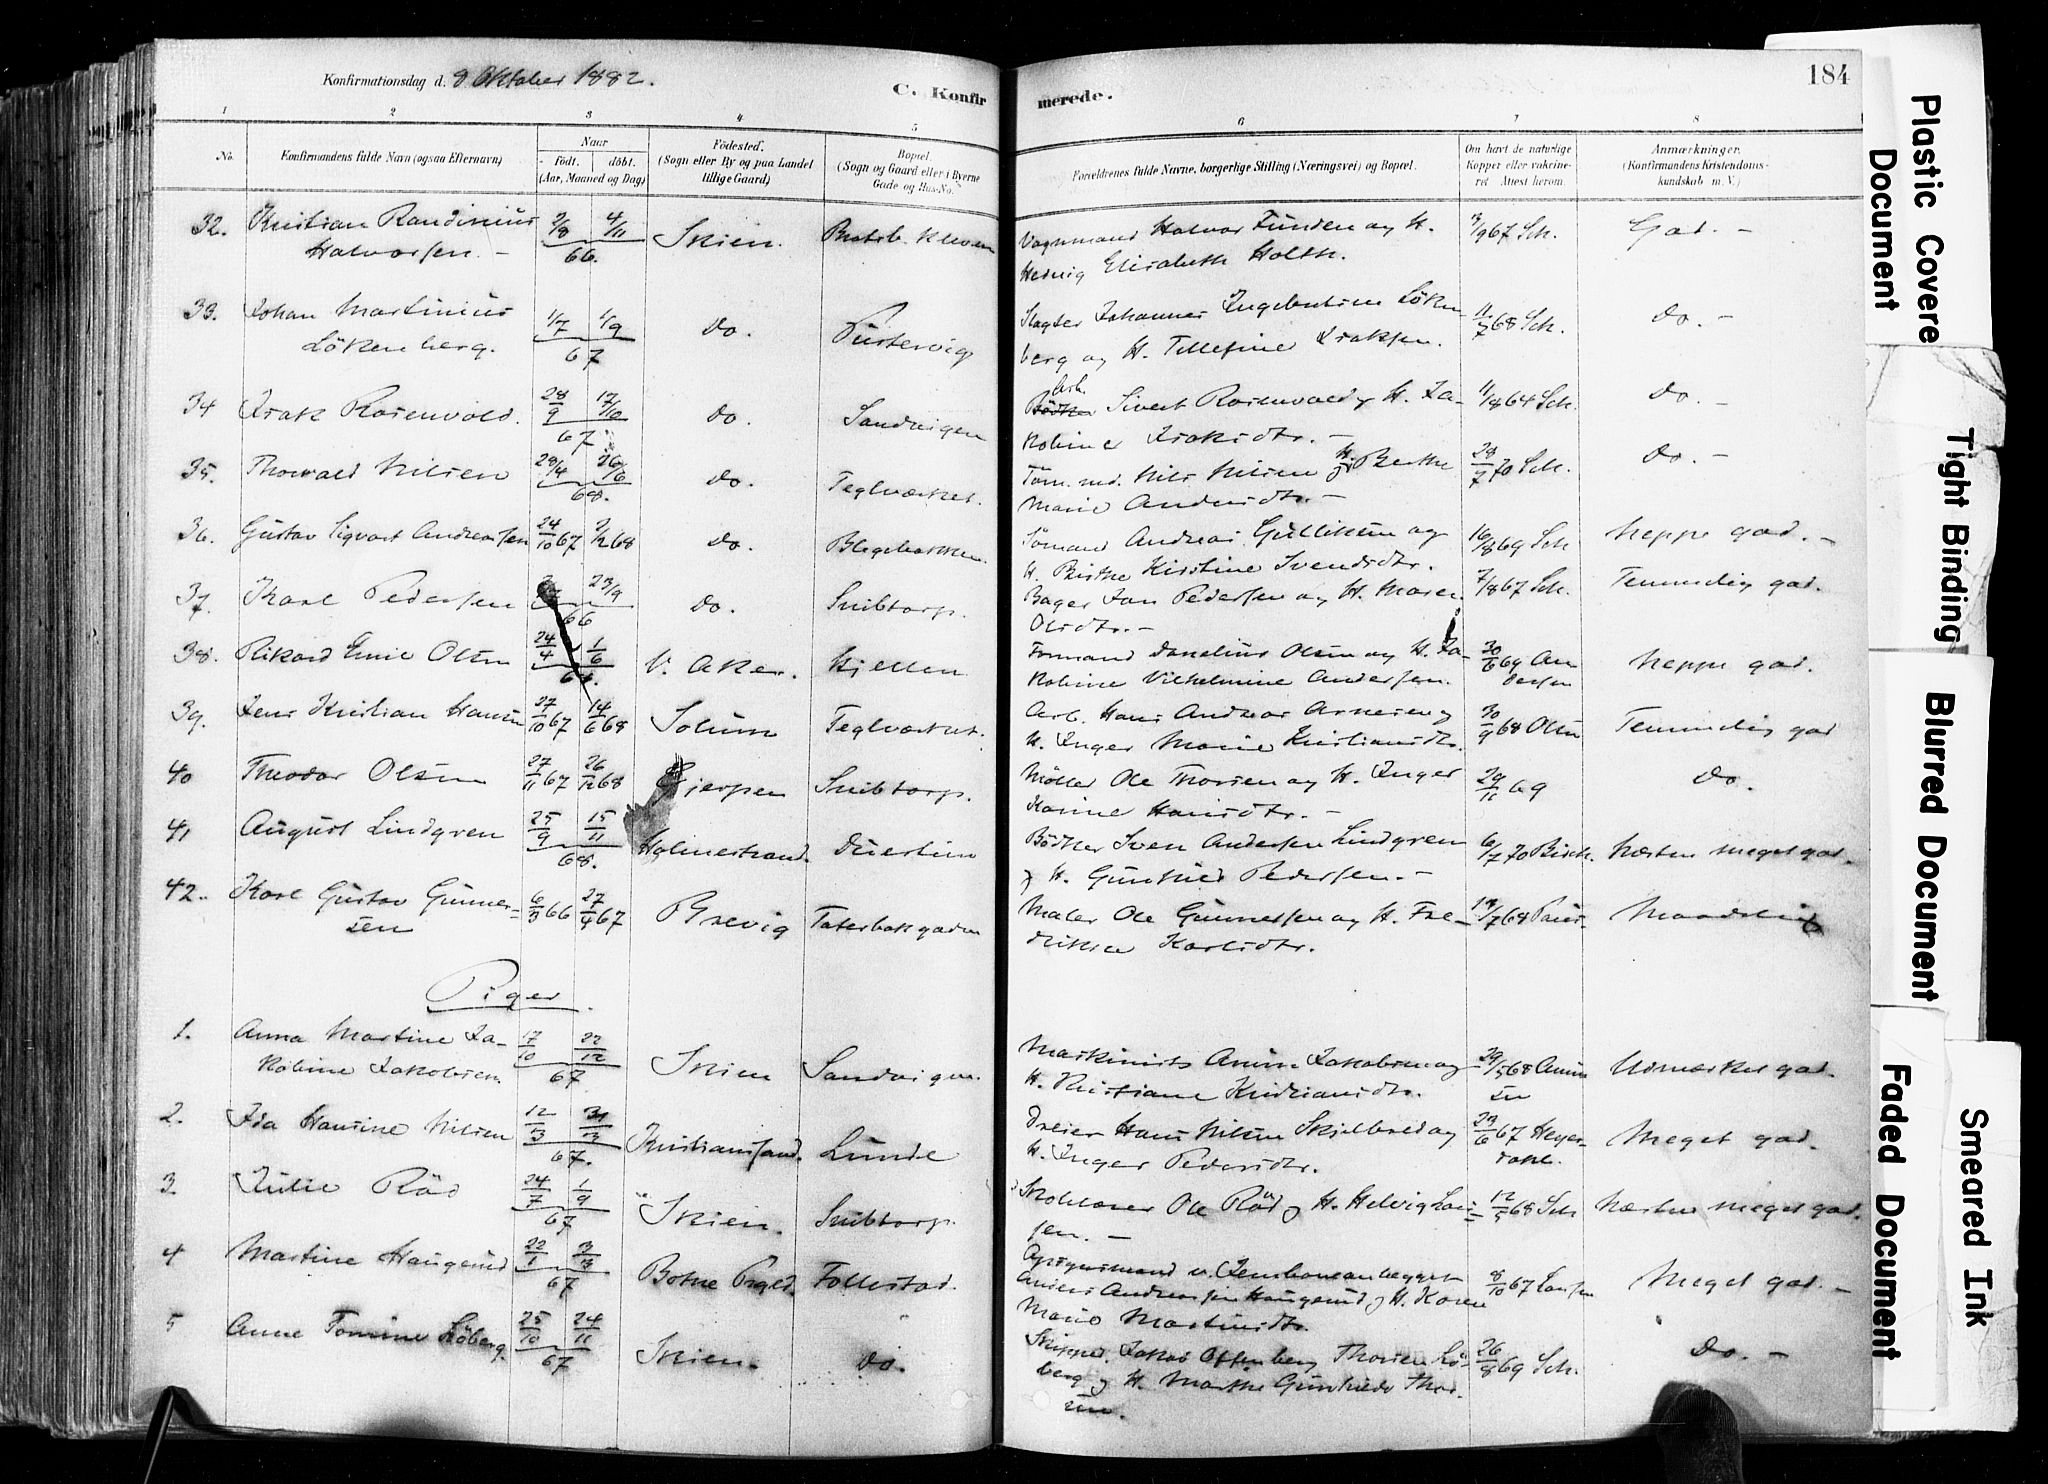 Konfirmationsdag d. 8 Oktober 1882.
C. Konfir
merede.
184
1 2 3 4 5 6 7 8
No.
Konfirmandens fulde Navn (ogsaa Efternavn)
Naar
födt. döbt.
(Aar, Maaned og Dag)
Födested.
(Sogn eller By og paa Landet
tillige Gaard)
Bopæl.
(Sogn og Gaard eller i Byerne
Gade og Hus-No.
Forældrenes fulde Navne, borgerlige Stilling (Næringsvei) og Bopæl.
Om havt de naturlige
Kopper eller vakcine-
ret Attest herom.
Anmærkninger.
(Konfirmandens Kristendoms-
kundskab m. V.)
32. Kristian Randinius 2/8 4/11 Skien. Vognmand Halvor Funden og H. 67 Sch. God. -
Halvorsen. - 66. Hedvig Elisabeth Holth.
33. Johan Martinius 1/7 1/9 Do. Pustervig Slagter Johannes Ingebretsen Löken- 11/7 68 Sch. Do. -
Lökenberg. 67 berg og H. Tellefine Isaksen.
34 Isak Rosenvold. 28/9 17/10 Do. Sandvigen Arb. Sivert Rosenvold og H. Ja- 64 Sch. Do. -
67 kobine Isaksdtr. -
35. Thorvald Nilsen 28/4 26/6 Do. Teglværket. Töm. md. Nils Nilsen og H. Berthe 28/7 70 Sch. Do. -
68. Marie Andersdtr. -
36. Gustav Sigvart Andreassen 24/10 67 2/2 68 Do. Blegebakken. Sömand Andreas Gulliksen og 16/8 69 Sch. Neppe god. -
H. Birthe Kirstine Svendsdtr.
37. Karl Pedersen 23/9 Do. Snibtorp. Bager Jan Pedersen og H. Maren 7/8 67 Sch. Temmelig god.
66 Olsdtr. -
38. Rikard Emil Olsen 24/4 1/6 V. Aker. Kjellen Formand Danelius Olsen og H. Ja- 30/6 69 An Neppe god.
68. kobine Vilhelmine Andersen. dersen
39. Jens Kristian Hansen 27/10 67 14/6 68 Solum Teglværket. Arb. Hans Andreas Arnesen og 30/9 68 Olsen Temmelig god
H. Inger Marie Kristiansdtr.
40 Theodor Olsen 27/11 67 26/12 68 Gjerpen Snibtorp. Möller Ole Thorsen og H. Inger 29/11 69 Do.
Karine Hansdtr. -
41 August Lindgren 25/9 15/11 Holmestrand. Duestien Bödker Sven Andersen Lindgren 6/7 70 Næsten meget god.
68. og H. Gunhild Pedersen. -
42. Karl Gustav Gunner- 6/3 66 27/4 67 Brevig Taterbakgaden Maler Ole Gunnersen og H. Fre- 18/7 68 Maadelig
sen drikke Karlsdtr.
Piger.
1. Anna Martine Ja- 17/10 22/12 Skien Sandvigen. Maskinist Jakobsen og 29/5 68 Udmærket god.
kobine Jakobsen. 67 H. Kristiane Kristiansdtr. sen
2. Ida Hansine Nilsen 12/3 31/3 Kristiansand. Lunde Dreier Hans Nilsen Skjelbred og 23/6 67 Heyer Meget god.
67. H. Inger Pedersdtr. dahl.
3. Julie Röd 24/7 1/9 Skien. Snibtorp. Ole Röd og H. Helvig Lar- 12/5 68 Sch Næsten meget god.
67 sen. -
4 Martine Haugerud 22/1 3/3 Botne Prgld. Follestad. Opsynsmand v. Jernbaneanlægget 8/10 67 Larsen Meget god. -
67 Anders Andreassen Haugerud og H. Karen
Marie Martinsdtr.
5 Anne Tomine Löberg. 25/10 24/11 Skien. Do. Skipper. Jakob Thorsen Lö- 26/8 69 Sch. Do. -
67 berg og H. Marthe Gunhilde Thor
sen.
Plastic Covere
Document
Tight Binding
Blurred Document
Faded Document
Smeared Ink